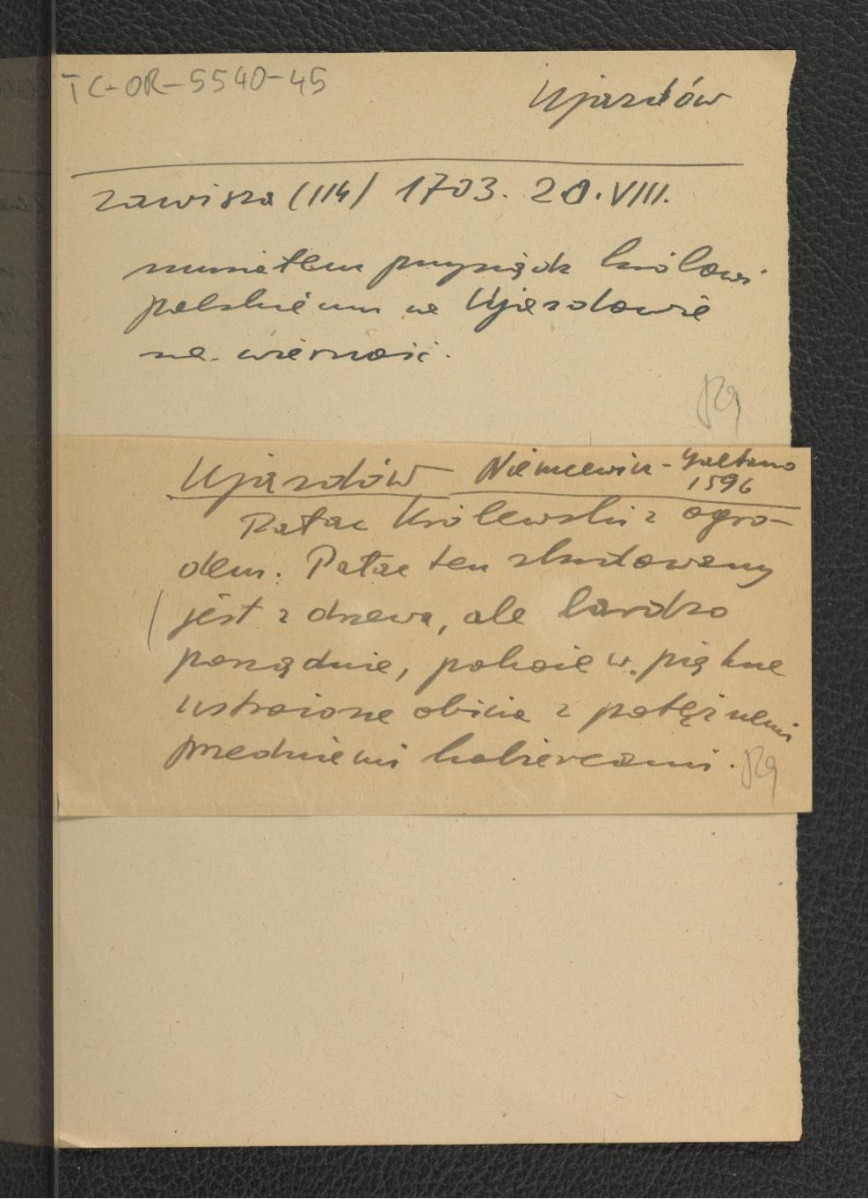 TC-OR-5540-45
Ujazdów
Zawisza (114) 1703. 20.VIII.
musiałem przysiądz królowi
polskiemu w Ujazdowie
na wierność.
Ujazdów Niemcewicz-Gaetano
1596
Pałac Królewski z ogro-
dem. Pałac ten zbudowany
jest z drzewa, ale bardzo
porządnie, pokoie w. piękne
ustroione obicia z potężnemi
przedniemi kobiercami.